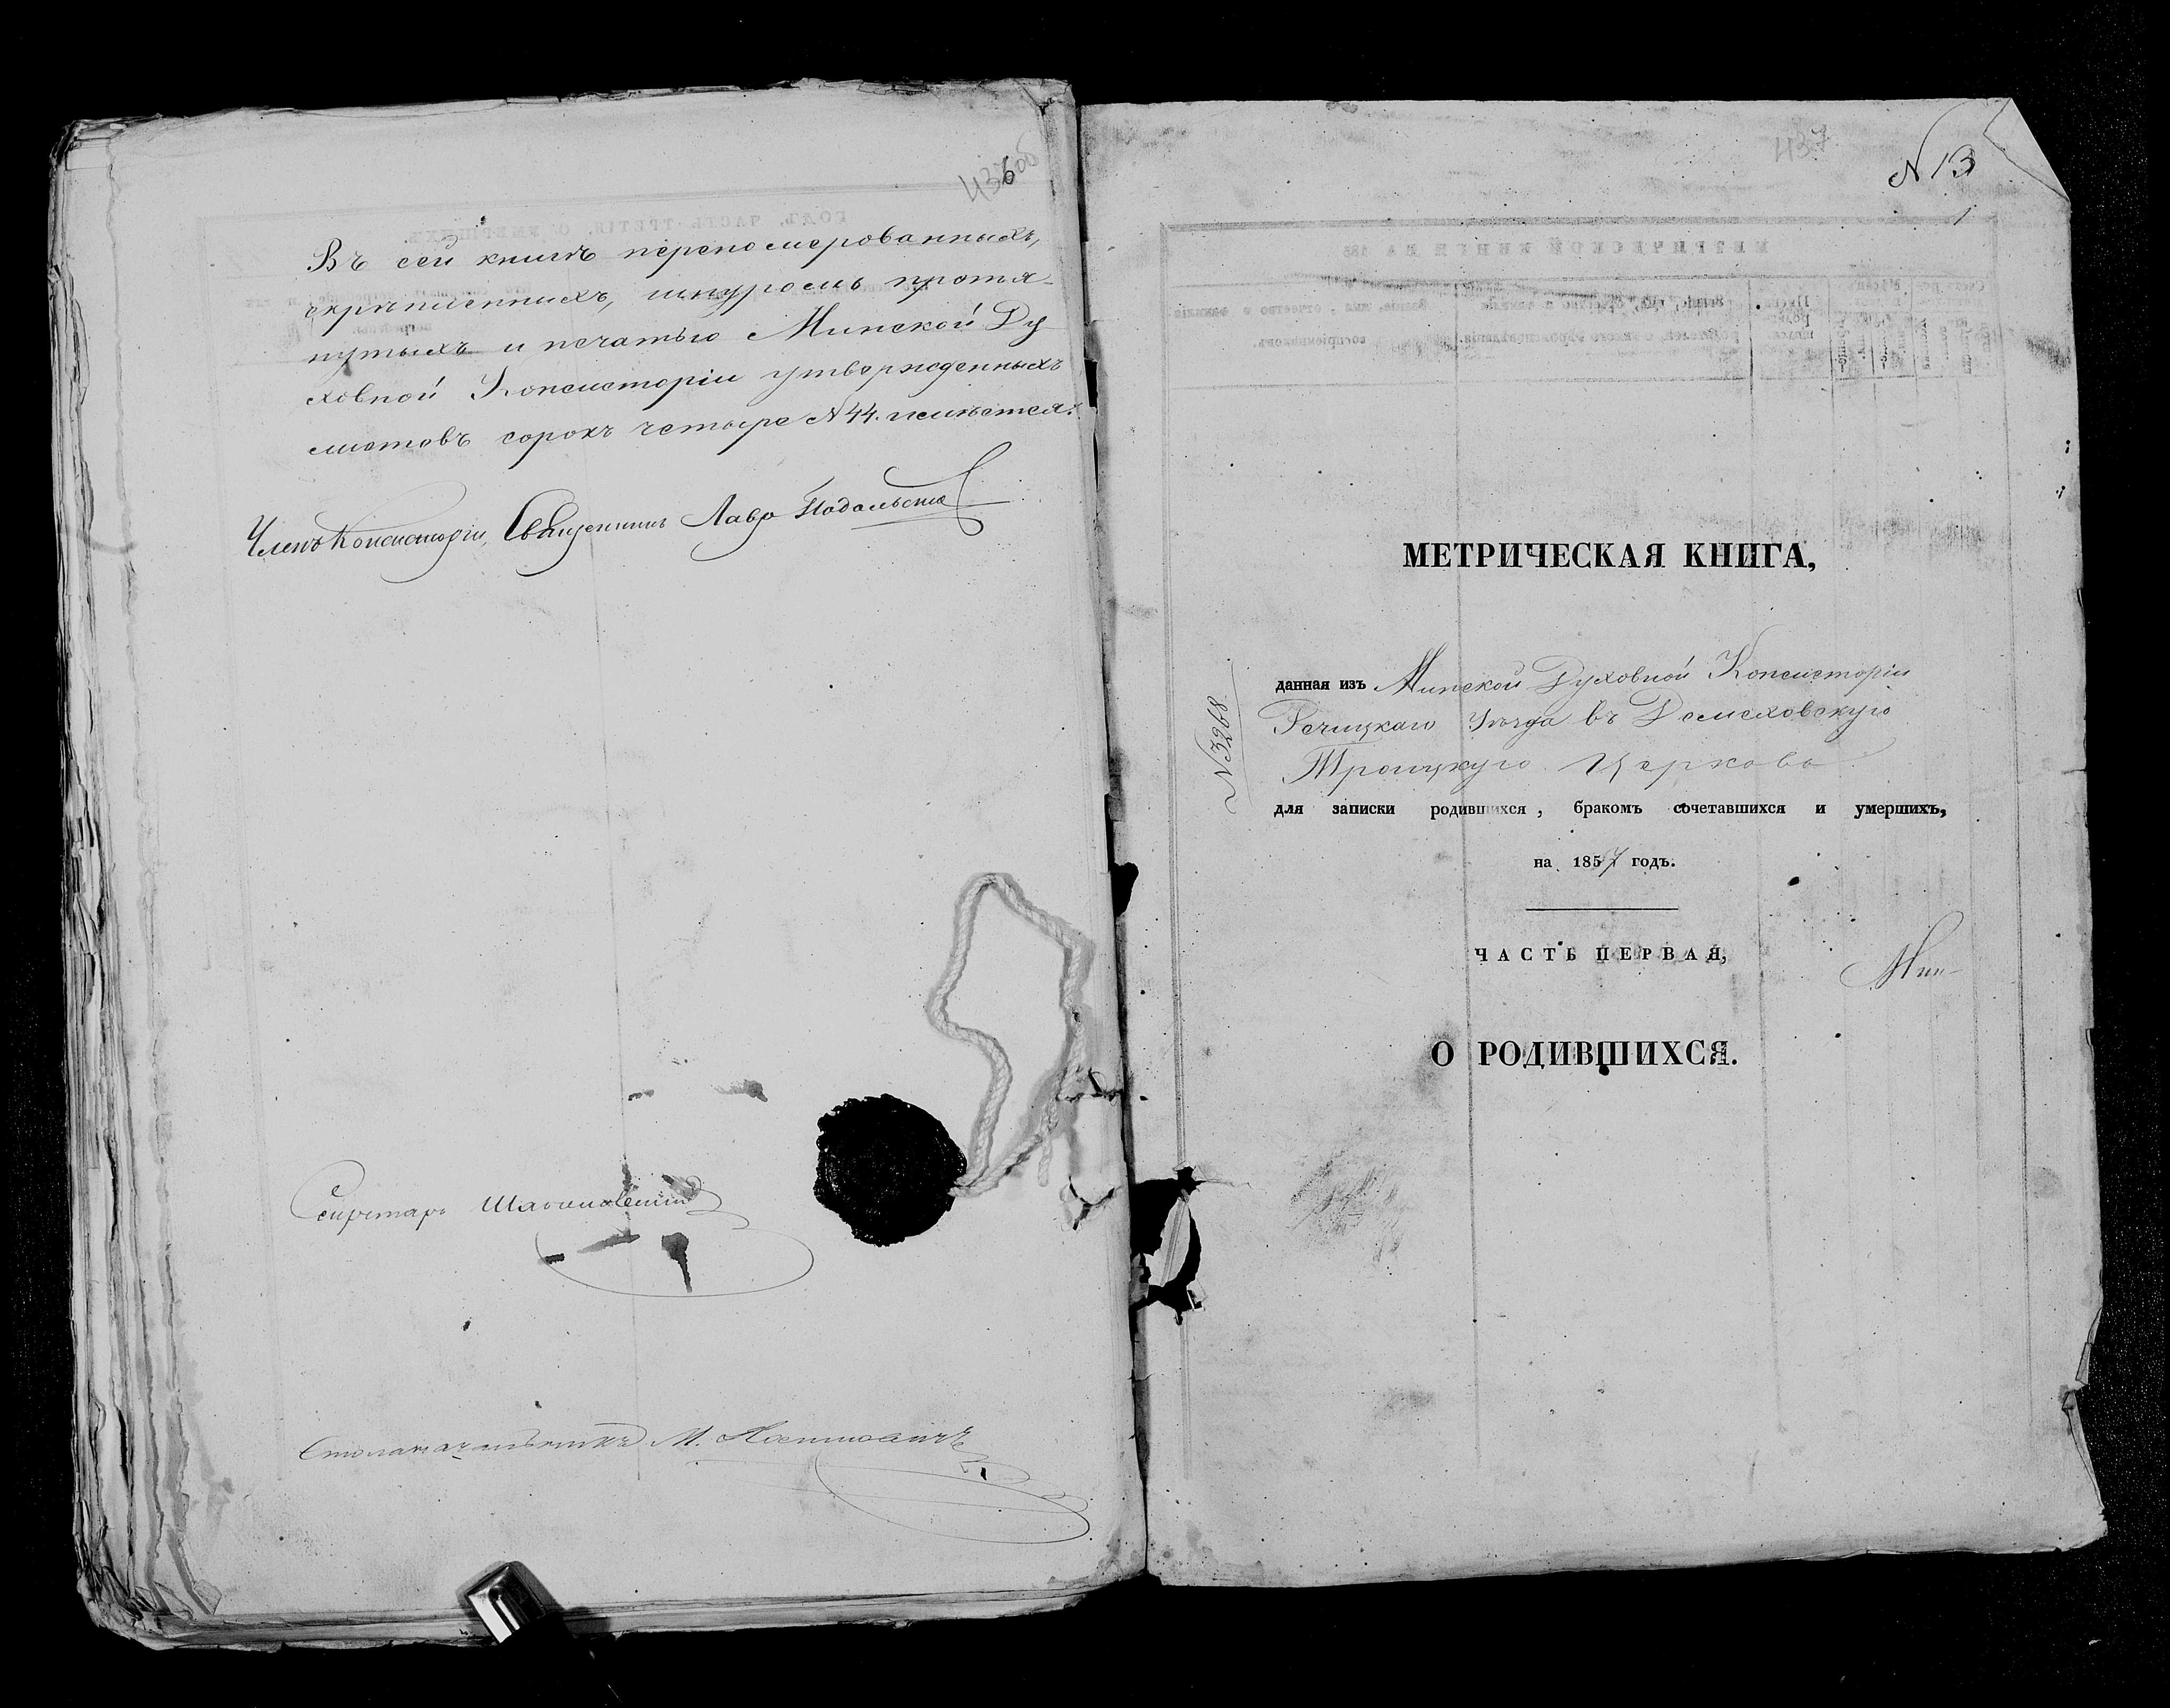 436об
Въ сей книгѣ перенумерованныхъ,
скрѣпленныхъ, шнуромъ протя-
нутыхъ и печатью Минской Ду
ховной Консисторіи утвержденныхъ
листовъ сорокъ четыре N 44. имѣется.
Членъ Консисторіи, Священникъ Лавр Подольскій
Секретарь
Столоначальникъ М.
437
N 13
1
МЕТРИЧЕСКАЯ КНИГА,
N 3268
данная изъ Минской Духовной Консисторіи
Речицкаго Уѣзда въ Демеховскую
Троицкую Церковь
для записки родившихся, бракомъ сочетавшихся и умершихъ,
на 1857 годъ.
ЧАСТЬ ПЕРВАЯ,
Мин-
О РОДИВШИХСЯ.